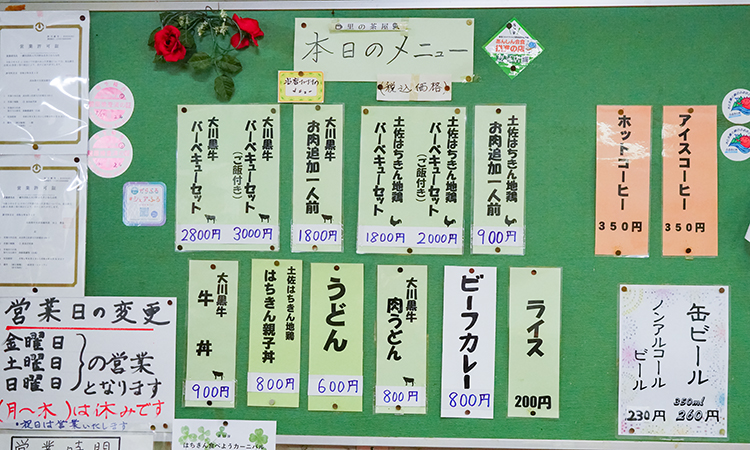 里の茶屋気
本日のメニュー
税込価格
大川黒牛
バーベキューセット
2800円
大川黒牛
バーベキューセット
(ご飯付き)
3000円
大川黒牛
お肉追加一人前
1800円
土佐はちきん地鶏
バーベキューセット
1800円
土佐はちきん地鶏
バーベキューセット
(ご飯付き)
2000円
土佐はちきん地鶏
お肉追加一人前
900円
ホットコーヒー
350円
アイスコーヒー
350円
大川黒牛
牛丼
900円
土佐はちきん地鶏
はちきん親子丼
800円
うどん
600円
大川黒牛
肉うどん
800円
ビーフカレー
800円
ライス
200円
缶ビール
350ml
260円
ノンアルコール
ビール
230円
営業日の変更
金曜日
土曜日
日曜日
の営業
となります
(月〜木)は休みです
・祝日は営業いたします
営業時間
はちきん食べようカーニバル
営業許可証